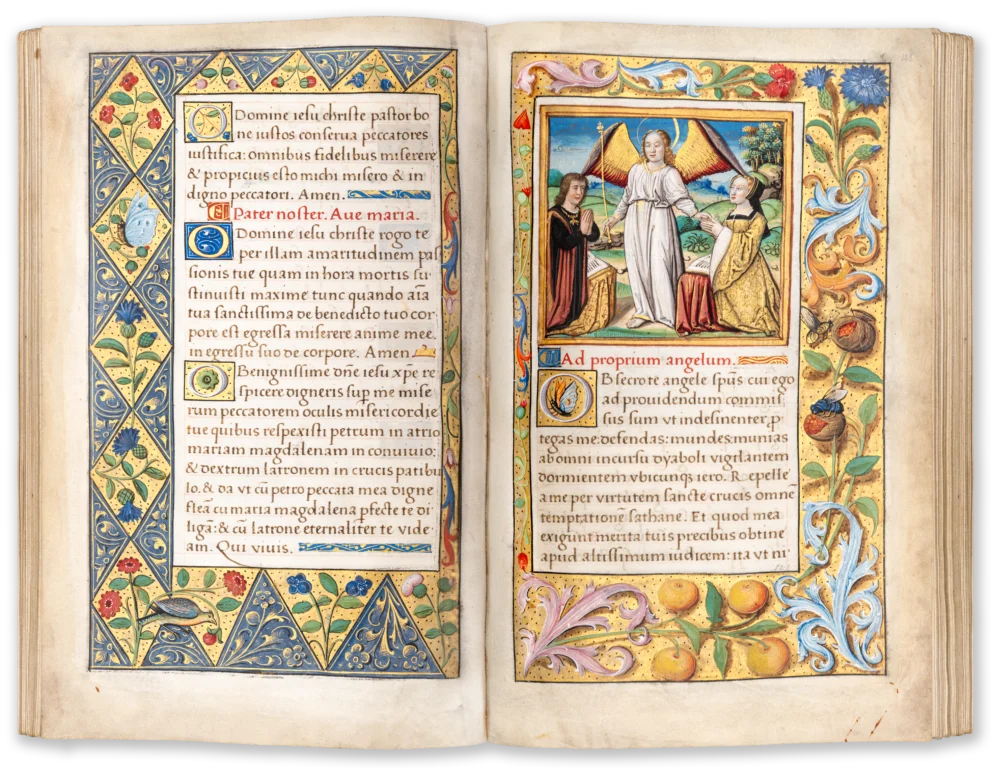 O Domine iesu christe pastor bo
ne iustos conserua peccatores
iustifica: omnibus fidelibus miserere
& propicius esto michi misero & in
digno peccatori. Amen.
Pater noster. Aue maria.
O Domine iesu christe rogo te
per illam amaritudinem pas
sionis tue quam in hora mortis su
stinuisti maxime tunc quando aīa
tua sanctissima de benedicto tuo cor
pore est egressa miserere anime mee
in egressu suo de corpore. Amen
O Benignissime dn̄e iesu xp̄e re
spicere digneris sup̱ me mise
rum peccatorem oculis misericordie
tue quibus respexisti petrum in atrio
mariam magdalenam in conuiuio:
& dextrum latronem in crucis patibu
lo. & da vt cū petro peccata mea digne
fleā cu maria magdalena pfecte te di
ligā: & cū latrone eternaliter te vide
am. Qui viuis.
Ad proprium angelum.
O Bsecro te angele sp̄us cui ego
ad prouidendum commis
sus sum vt indesinenter p
tegas me: defendas: mundes: munias
ab omni incursu dyaboli vigilantem
dormientem vbicunq iero. Repelle
a me per virtutem sancte crucis omnē
temptationē sathane. Et quod mea
exigunt merita tuis precibus obtine
apud altissimum iudicem: ita vt ni